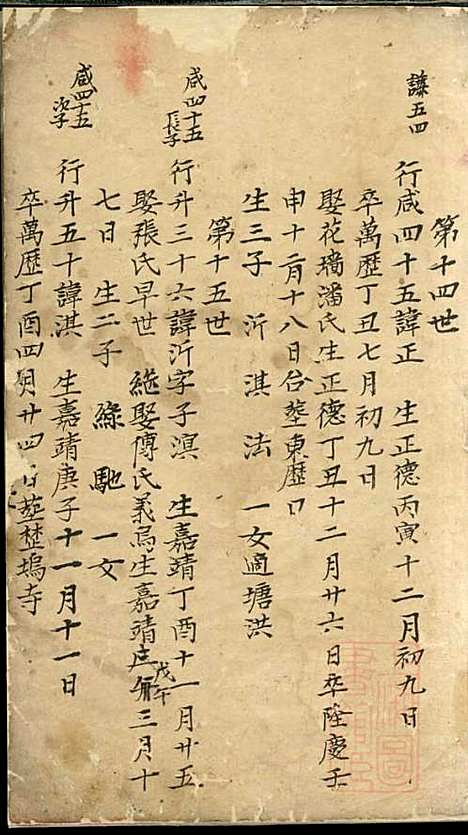 第十四世
諱五四
行咸四十五諱正 生正德丙寅十二月初九日
卒萬歷丁丑七月初九日
娶花墻潘氏生正德丁丑十二月廿六日卒隆慶壬
申十二月十八日合塟東歷口
生三子 沂 淇 法 一女適塘洪
第十五世
咸四十五
長子
行升三十六諱沂字子溟 生嘉靖丁酉十一月廿五
娶張氏早世 繼娶傅氏義烏生嘉靖戊午三月十
七日 生二子 綠 馳 一女
咸四十五
次子
行升五十諱淇 生嘉靖庚子十一月十一日
卒萬歷丁酉四月廿四日塟塢寺